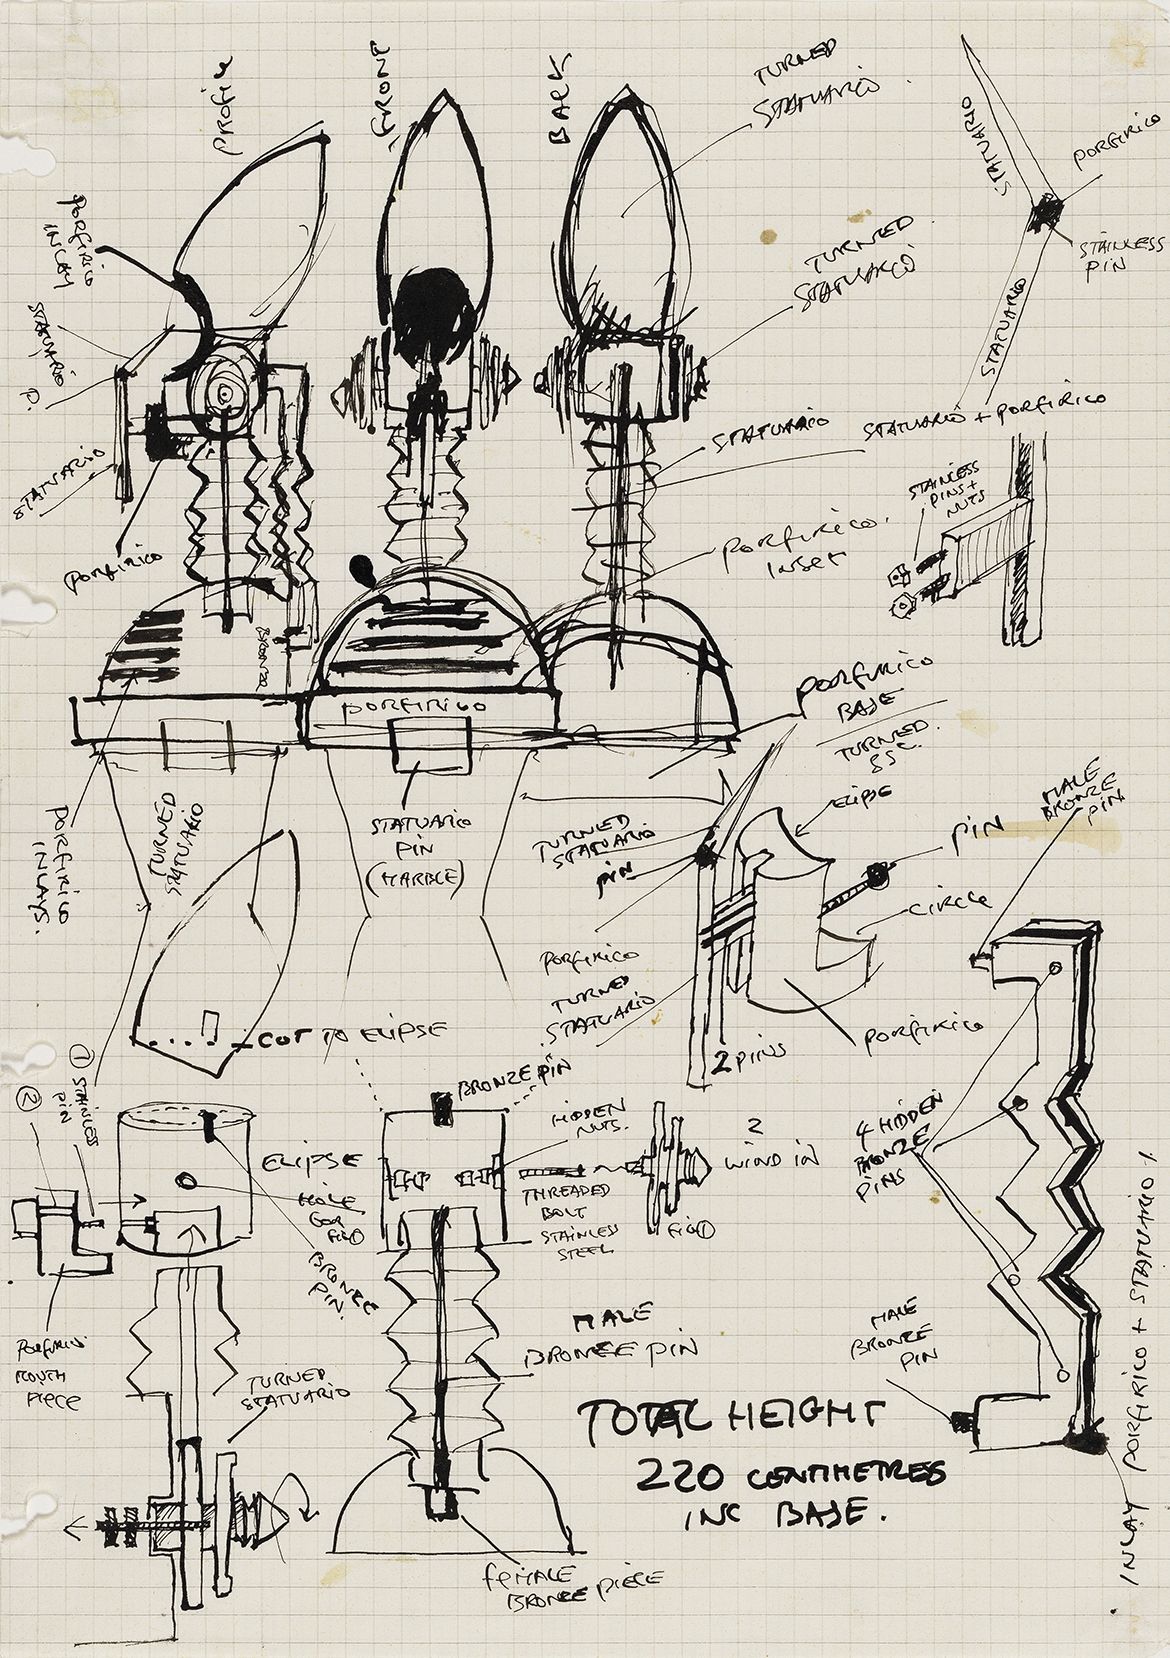 PROFILE
FRONT
BACK
TURNED
STATUARIO
STATUARIO
PORFIRICO
STAINLESS
PIN
STATUARIO
PORFIRICO
INLAY
STATUARIO
P.
STATUARIO
PORFIRICO
TURNED
STATUARIO
STATUARIO
STATUARIO + PORFIRICO
STAINLESS
PINS +
NUTS
PORFIRICO
INSET
BRONZE
PORFIRICO
PORFIRICO
BASE
TURNED
ELIPSE
PORFIRICO
INLAYS.
TURNED
STATUARIO
STATUARIO
PIN
(MARBLE)
TURNED
STATUARIO
PIN
PIN
CIRCLE
MALE
BRONZE
PIN
PORFIRICO
TURNED
STATUARIO
2 PINS
PORFIRICO
CUT TO ELIPSE
BRONZE PIN
HIDDEN
NUTS.
① STAINLESS
PIN
②
ELIPSE
HOLE
FOR
FIG①
BRONZE
PIN.
THREADED
BOLT
STAINLESS
STEEL
FIG①
2
WIND IN
4 HIDDEN
BRONZE
PINS
PORFIRICO
MOUTH
PIECE
TURNED
STATUARIO
MALE
BRONZE PIN
MALE
BRONZE
PIN
TOTAL HEIGHT
220 CENTIMETRES
INC BASE.
FEMALE
BRONZE PIECE
INLAY PORFIRICO + STATUARIO